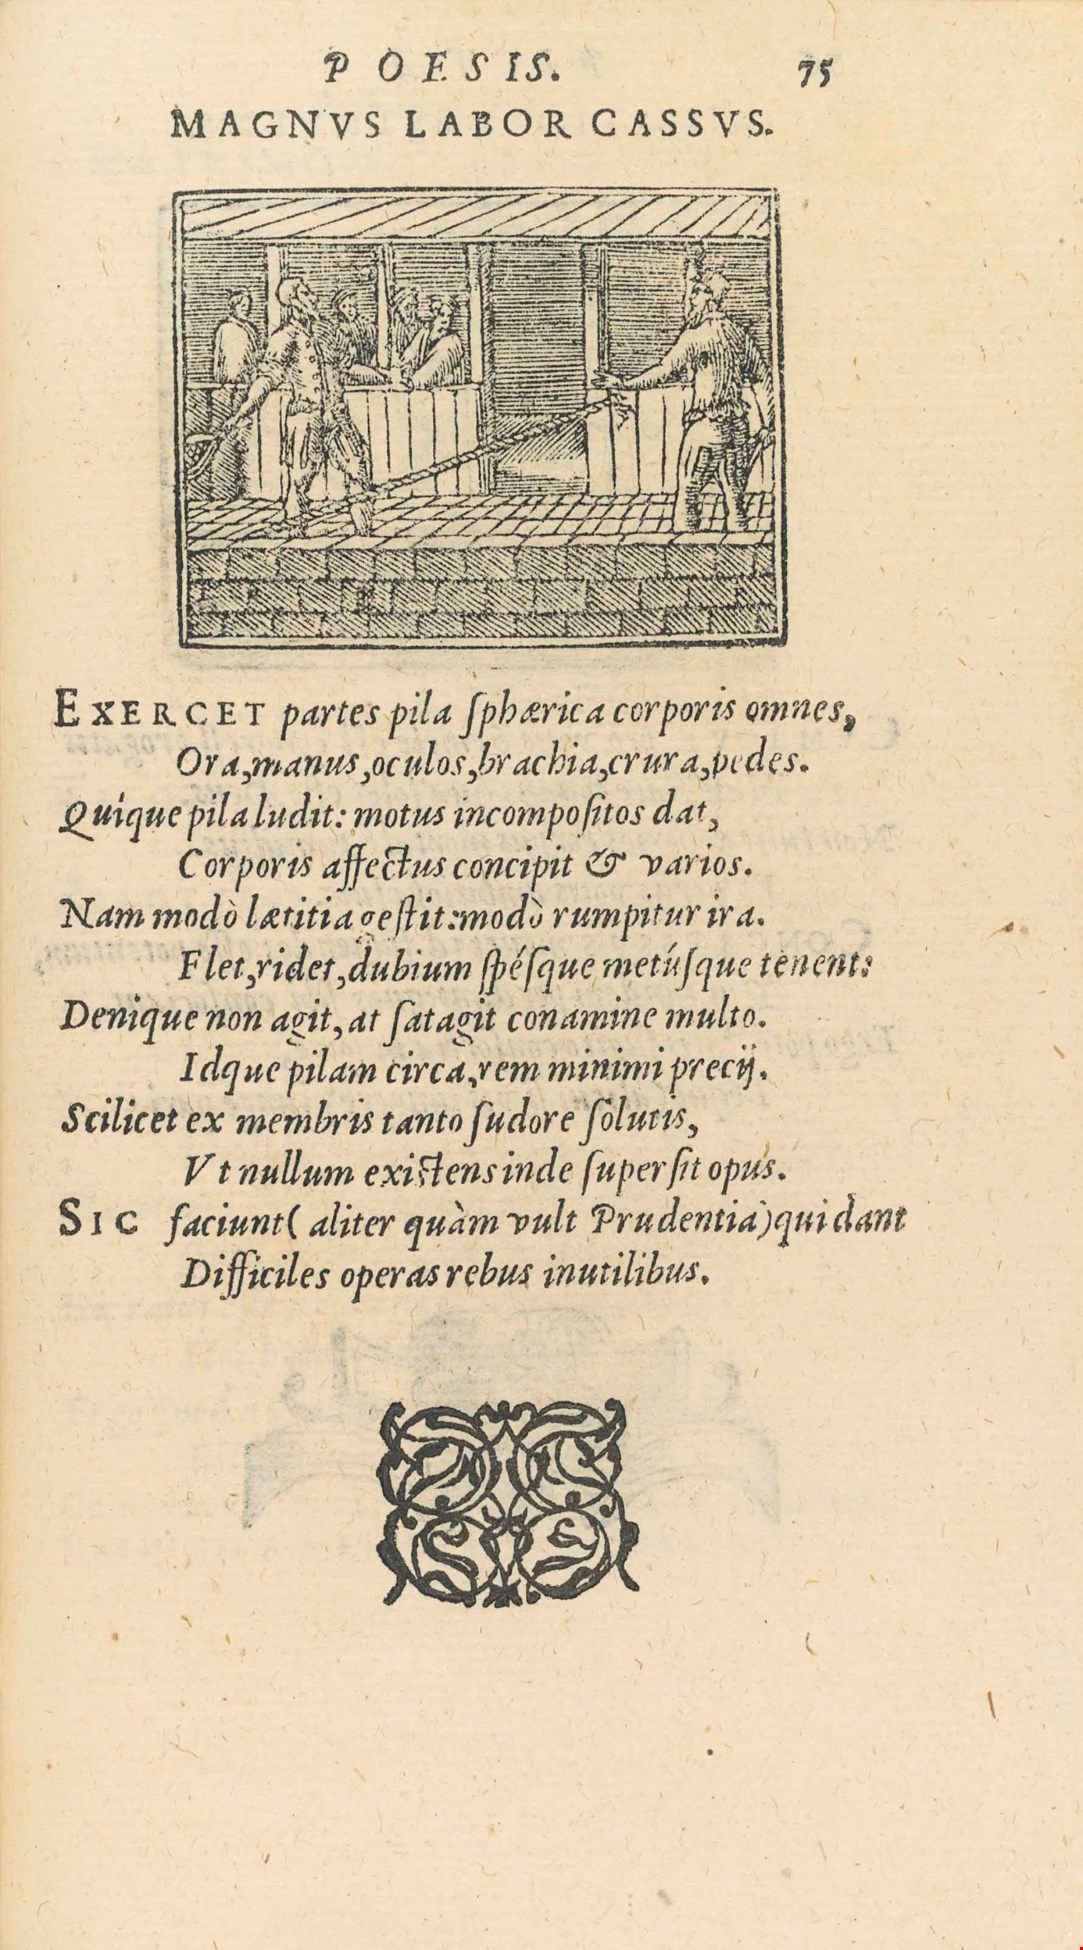 POESIS. 75
MAGNVS LABOR CASSVS.
EXERCET partes pila ſphærica corporis omnes,
Ora,manus,oculos,brachia,crura,pedes.
Quíque pila ludit: motus incompoſitos dat,
Corporis affectus concipit & varios.
Nam modò lætitia geſtit:modò rumpitur ira.
Flet,ridet,dubium ſpéſque metúſque tenent:
Denique non agit, at ſatagit conamine multo.
Idque pilam circa,rem minimi precij.
Scilicet ex membris tanto ſudore ſolutis,
Vt nullum exiſtens inde ſuperſit opus.
SIC faciunt( aliter quàm vult Prudentia)qui dant
Difficiles operas rebus inutilibus.